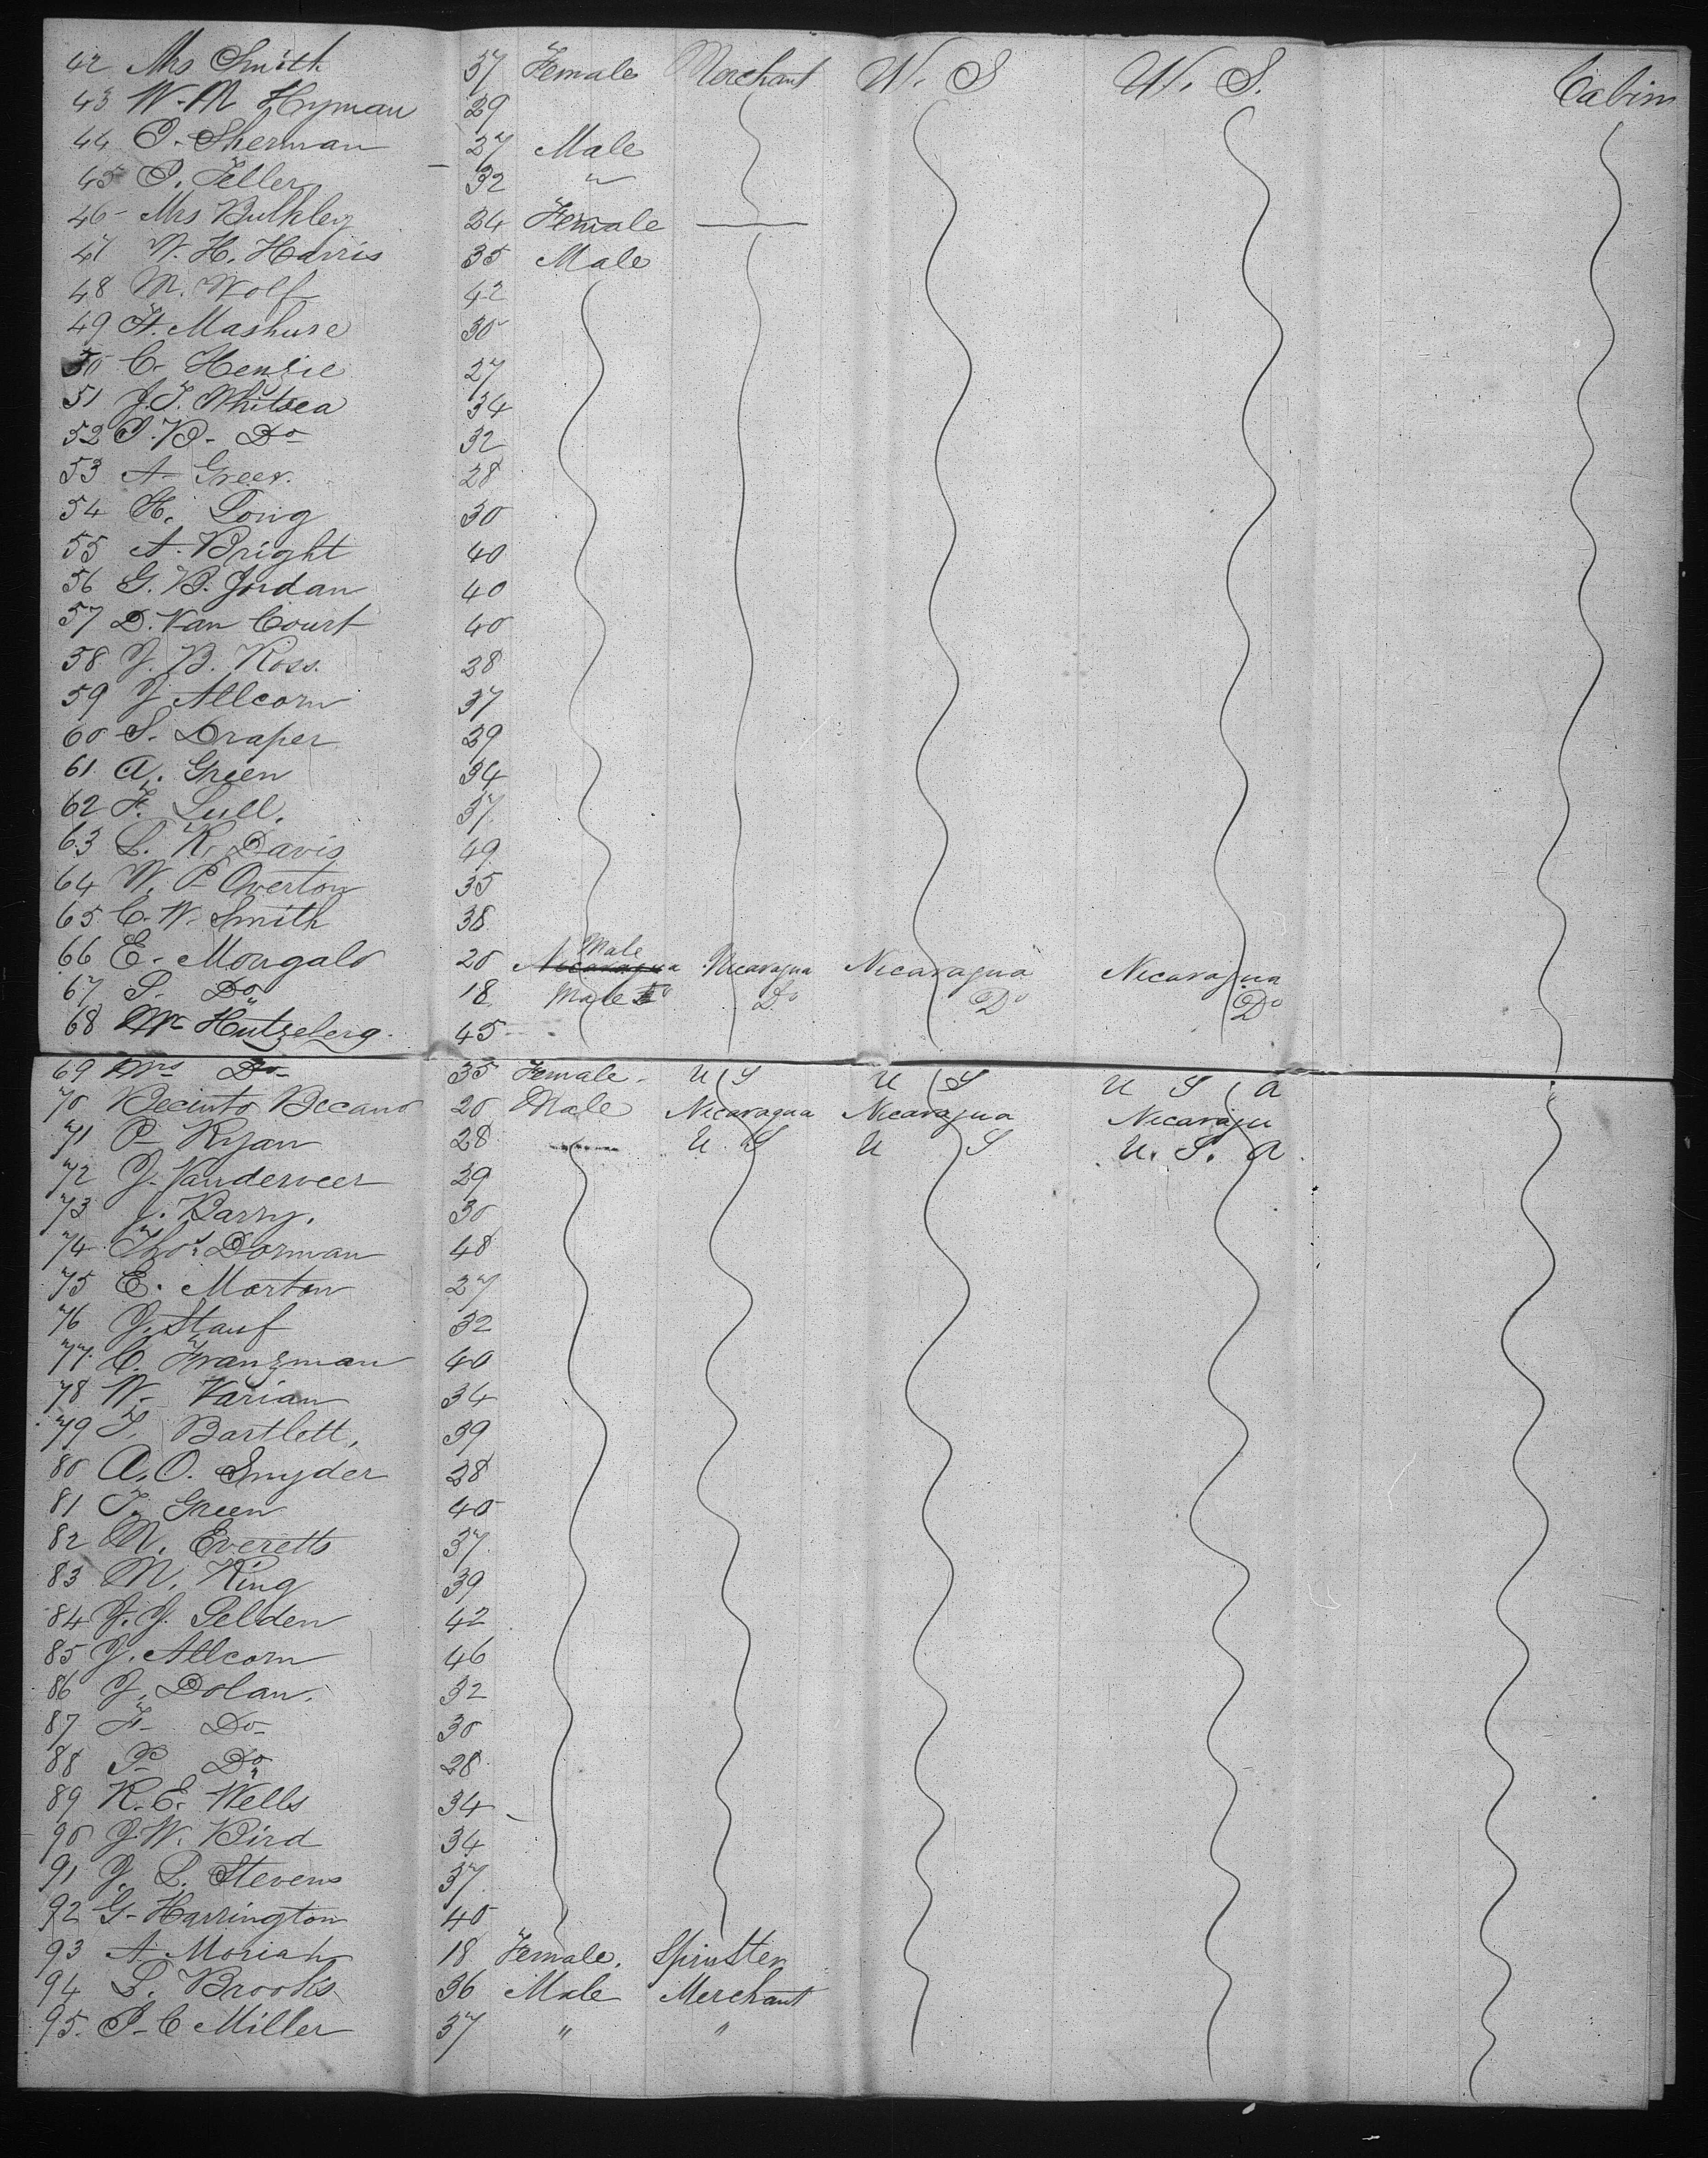 42 Mrs Smith 37 Female Merchant U. S U. S. Cabin
43 W. M Hyman 29
44 P. Sherman 27 Male
45 P. Feller 32 "
46 Mrs Bulkley 24 Female —
47 W. H. Harris 35 Male
48 M. Wolf 42
49 H. Mashure 30
50 C. Henzie 27
51 J. T. Whitsea 34
52 P. B. Do 32
53 A. Greer. 28
54 H. Long 30
55 A. Bright 40
56 G. B. Jordan 40
57 D. Van Court 40
58 J. B. Ross. 28
59 J Allcorn 37
60 S. Draper 39
61 A. Green 34
62 F. Lull. 37
63 L. K. Davis 49
64 W. P Overton 35
65 C. W. Smith 38
66 E. Mongalo 20 Male Nicaragua Nicaragua Nicaragua Nicaragua
67 S. Do 18 Male Do Do Do
68 Mr Hutzelerg. 45
69 Mrs Do 35 Female. U S U S U S A
70 Becinto Becano 20 Male Nicaragua Nicaragua Nicaragu
71 P Ryan 28 U. S U S U. S. A.
72 J. Vanderveer 29
73 J. Barry. 30
74 Thos Dorman 48
75 E. Morton 27
76 J. Stauf 32
77 C. Franzman 40
78 W. Varian 34
79 T. Bartlett, 39
80 A. O. Snyder 28
81 T. Green 40
82 M. Everetts 37
83 M. King 39
84 J. J. Selden 42
85 J. Allcorn 46
86 J. Dolan. 32
87 F. Do 30
88 P. Do 28
89 R. E. Wells 34
90 J W. Bird 34
91 J. L. Stevens 37
92 G. Harrington 40
93 A Moriah 18 Female. Spinster
94 L. Brooks 36 Male Merchant
95. P. C Miller 37 " "